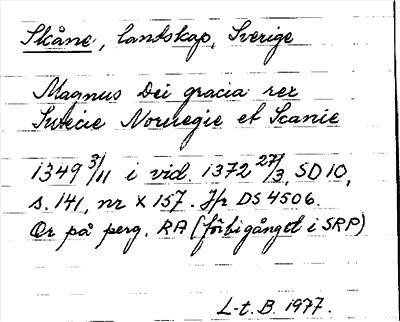 Skåne, landskap, Sverige
Magnus Dei gracia rex
Swecie Norwegie et Scanie
1349 3/11 i vid. 1372 27/3, SD 10,
s. 141, nr X 157. Jfr DS 4506.
Or på perg. RA (förbigånget i SRP)
L-t. B. 1977.